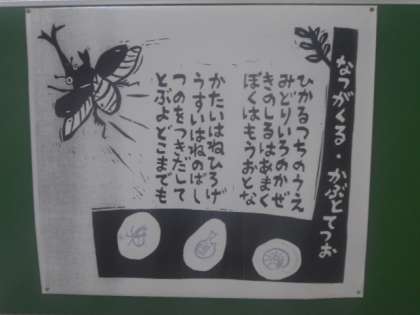 なつがくる・かぶとてつお
ひかるつちのうえ
みどりいろのかぜ
きのしるはあまく
ぼくはもうおとな
かたいはねひろげ
うすいはねのばし
つのをつきだして
とぶよどこまでも